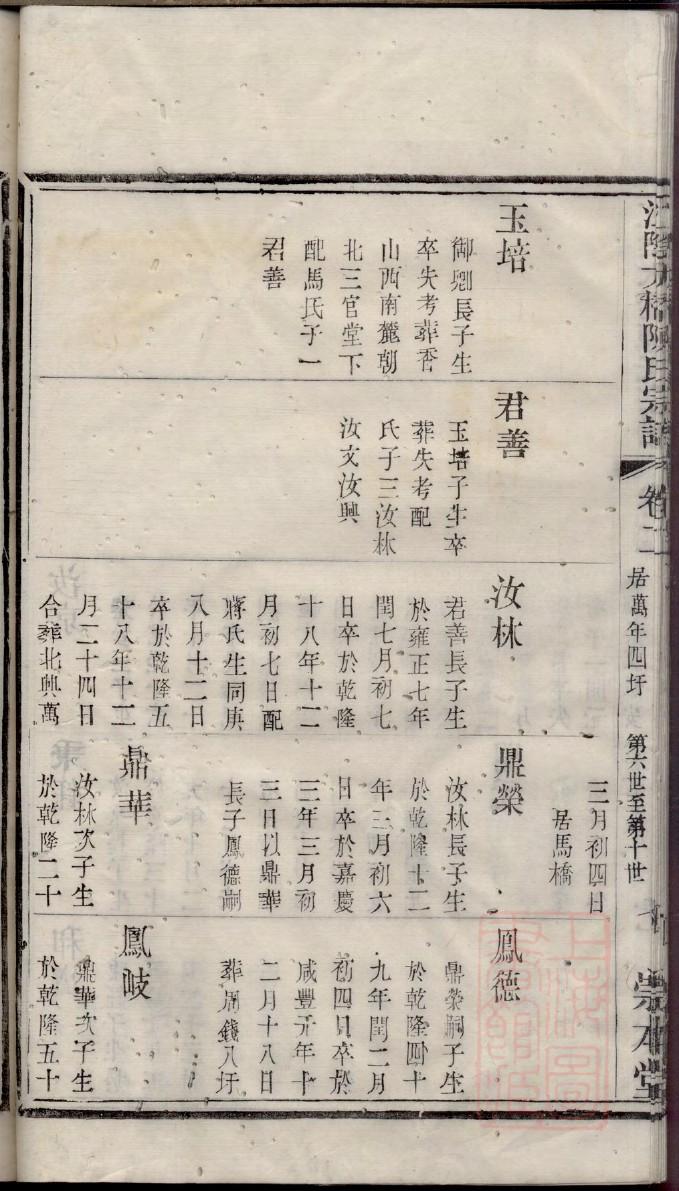 江陰六橋陳氏宗譜
卷二
居萬年四圩
第六世至第十世
崇本堂
玉培
御卿長子生
卒失考葬香
山西南麓朝
北三官堂下
配馬氏子一
君善
君善
玉培子生卒
葬失考配
氏子三汝林
汝文汝興
汝林
君善長子生
於雍正七年
閏七月初七
日卒於乾隆
十八年十二
月初七日配
蔣氏生同庚
八月十二日
卒於乾隆五
十八年十二
月二十四日
合葬北興萬
三月初四日
居馬橋
鼎榮
汝林長子生
於乾隆十二
年三月初六
日卒於嘉慶
三年三月初
三日以鼎華
長子鳳德嗣
鼎華
汝林次子生
於乾隆二十
鳳德
鼎榮嗣子生
於乾隆四十
九年閏二月
初四日卒於
咸豐元年十
二月十八日
葬周錢八圩
鳳岐
鼎華次子生
於乾隆五十